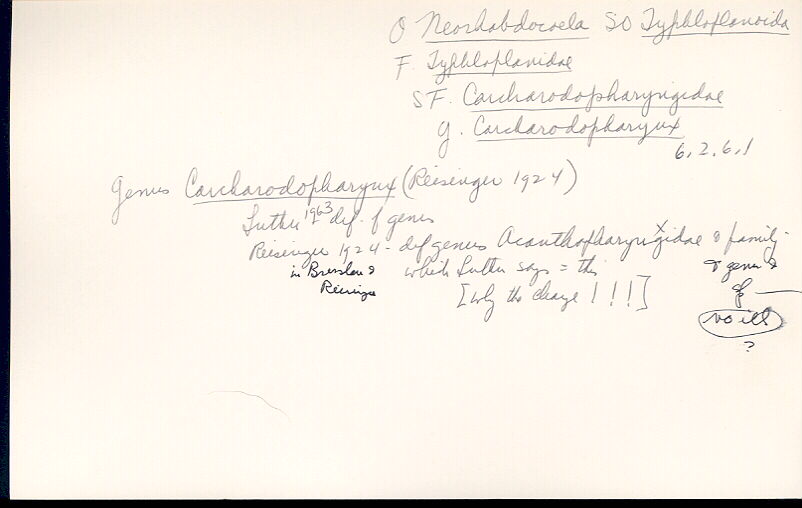 O Neorhabdocoela SO Typhloplanoida
F. Typhloplanidae
SF. Carcharodopharyngidae
g. Carcharodopharynx
6.2.6.1
Genus Carcharodopharynx (Reisinger 1924)
Luther 1963 def. of genus
Reisinger 1924 - def genus Acanthopharyngidae & family -
in Bresslau & which Luther says = this & genus &
Reisinger [why the change!!!]
no ill
?